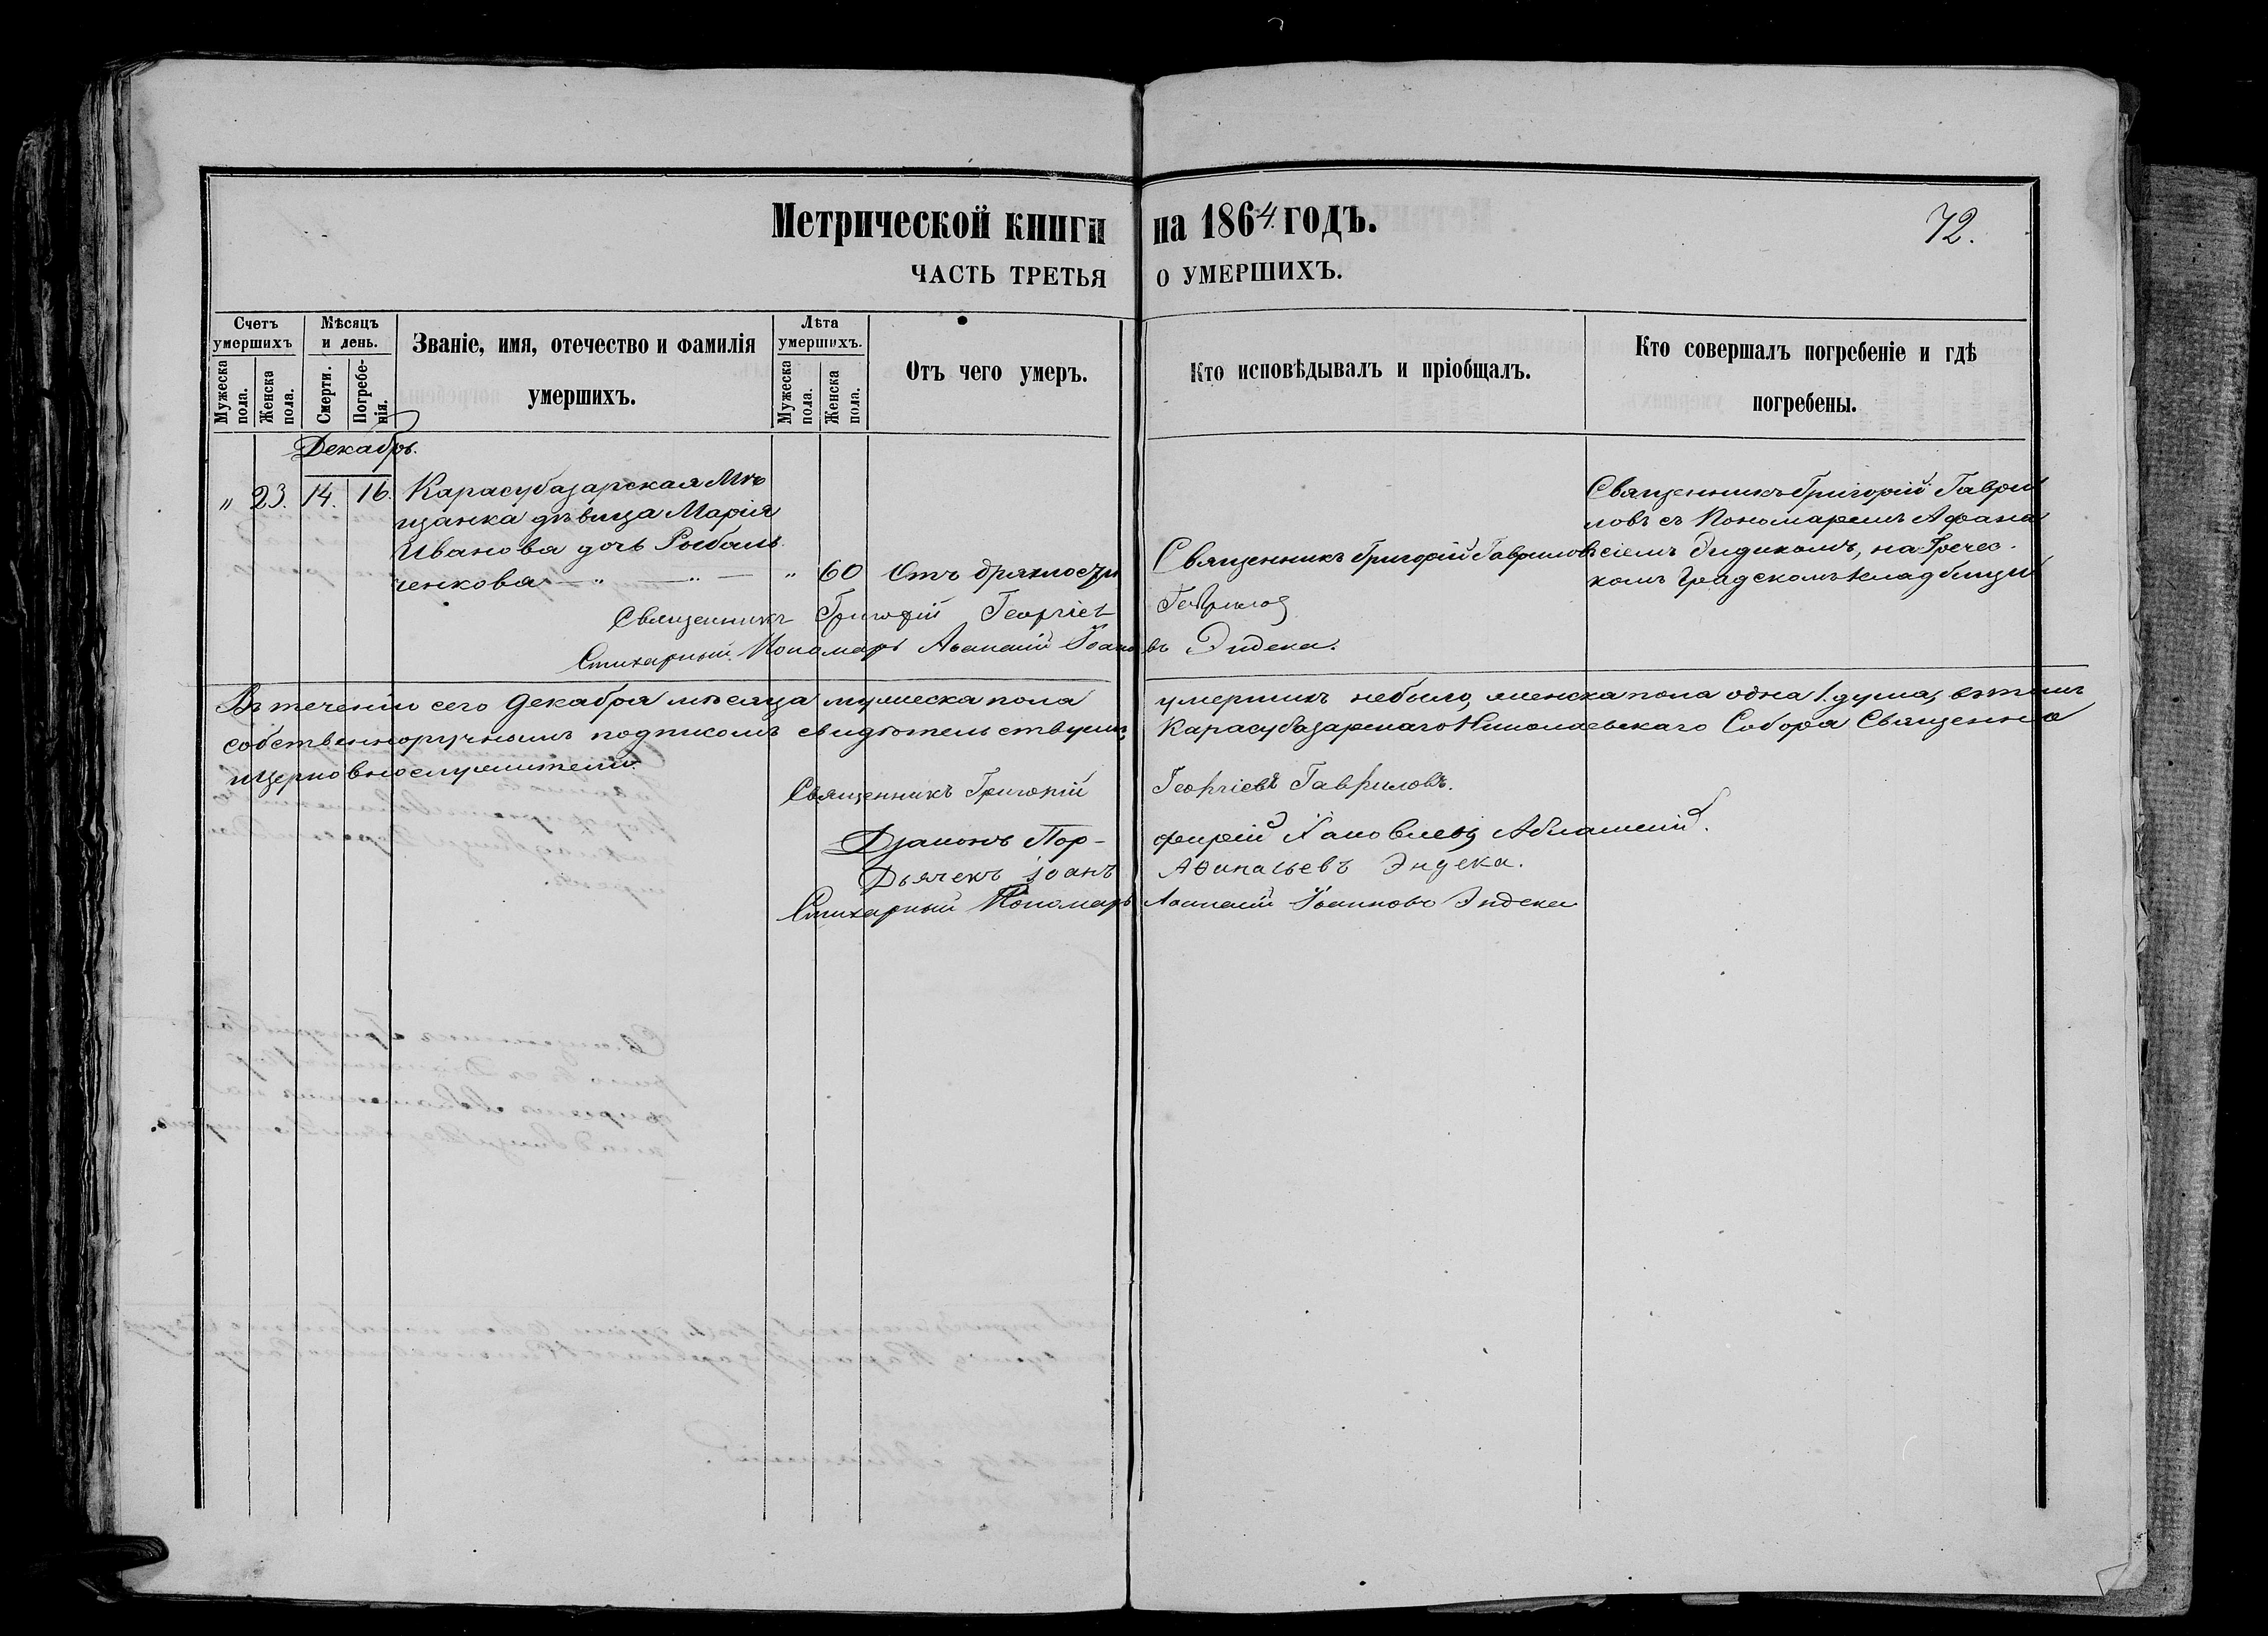 Метрической книги на 1864 годъ.
72.
ЧАСТЬ ТРЕТЬЯ О УМЕРШИХЪ.
Счетъ умершихъ
Мужеска пола.
Женска пола.
Мѣсяцъ и день.
Смерти.
Погребе-нія.
Званіе, имя, отечество и фамилія
умершихъ.
Лѣта умершихъ.
Мужеска пола.
Женска пола.
Отъ чего умеръ.
Кто исповѣдывалъ и пріобщалъ.
Кто совершалъ погребеніе и гдѣ
погребены.
Декабрь.
„ 23. 14. 16. Карасубазарская Мѣ
щанка дѣвица Марія
Иванова дочь Рыбаль
ченкова — „ — „ — „ 60 Отъ дряхлости
Священникъ Григорій Гавриловъ
Священникъ Григорій Гаври
ловъ съ Пономаремъ Афана
сіемъ Эндекомъ, на Гречес-
комъ Градскомъ кладбищѣ
Священникъ Григорій Георгіевъ Гавриловъ
Стихарный Пономарь Аѳанасій Іоановъ Эндека.
Въ теченіи сего Декабря мѣсяца мужеска пола умершихъ небыло, женска пола одна 1. душа, въ томъ
собственноручнымъ подписомъ свидѣтельствуемъ, Карасубазарскаго Николаевскаго Собора Священно
и Церковнослужители:
Священникъ Григорій Георгіевъ Гавриловъ.
Діаконъ Пор-фирій Яковлевъ Аблашскій.
Дьячекъ Іоанъ Аѳинасьевъ Эндека.
Стихарный Пономарь Аѳанасій Іоанновъ Эндека